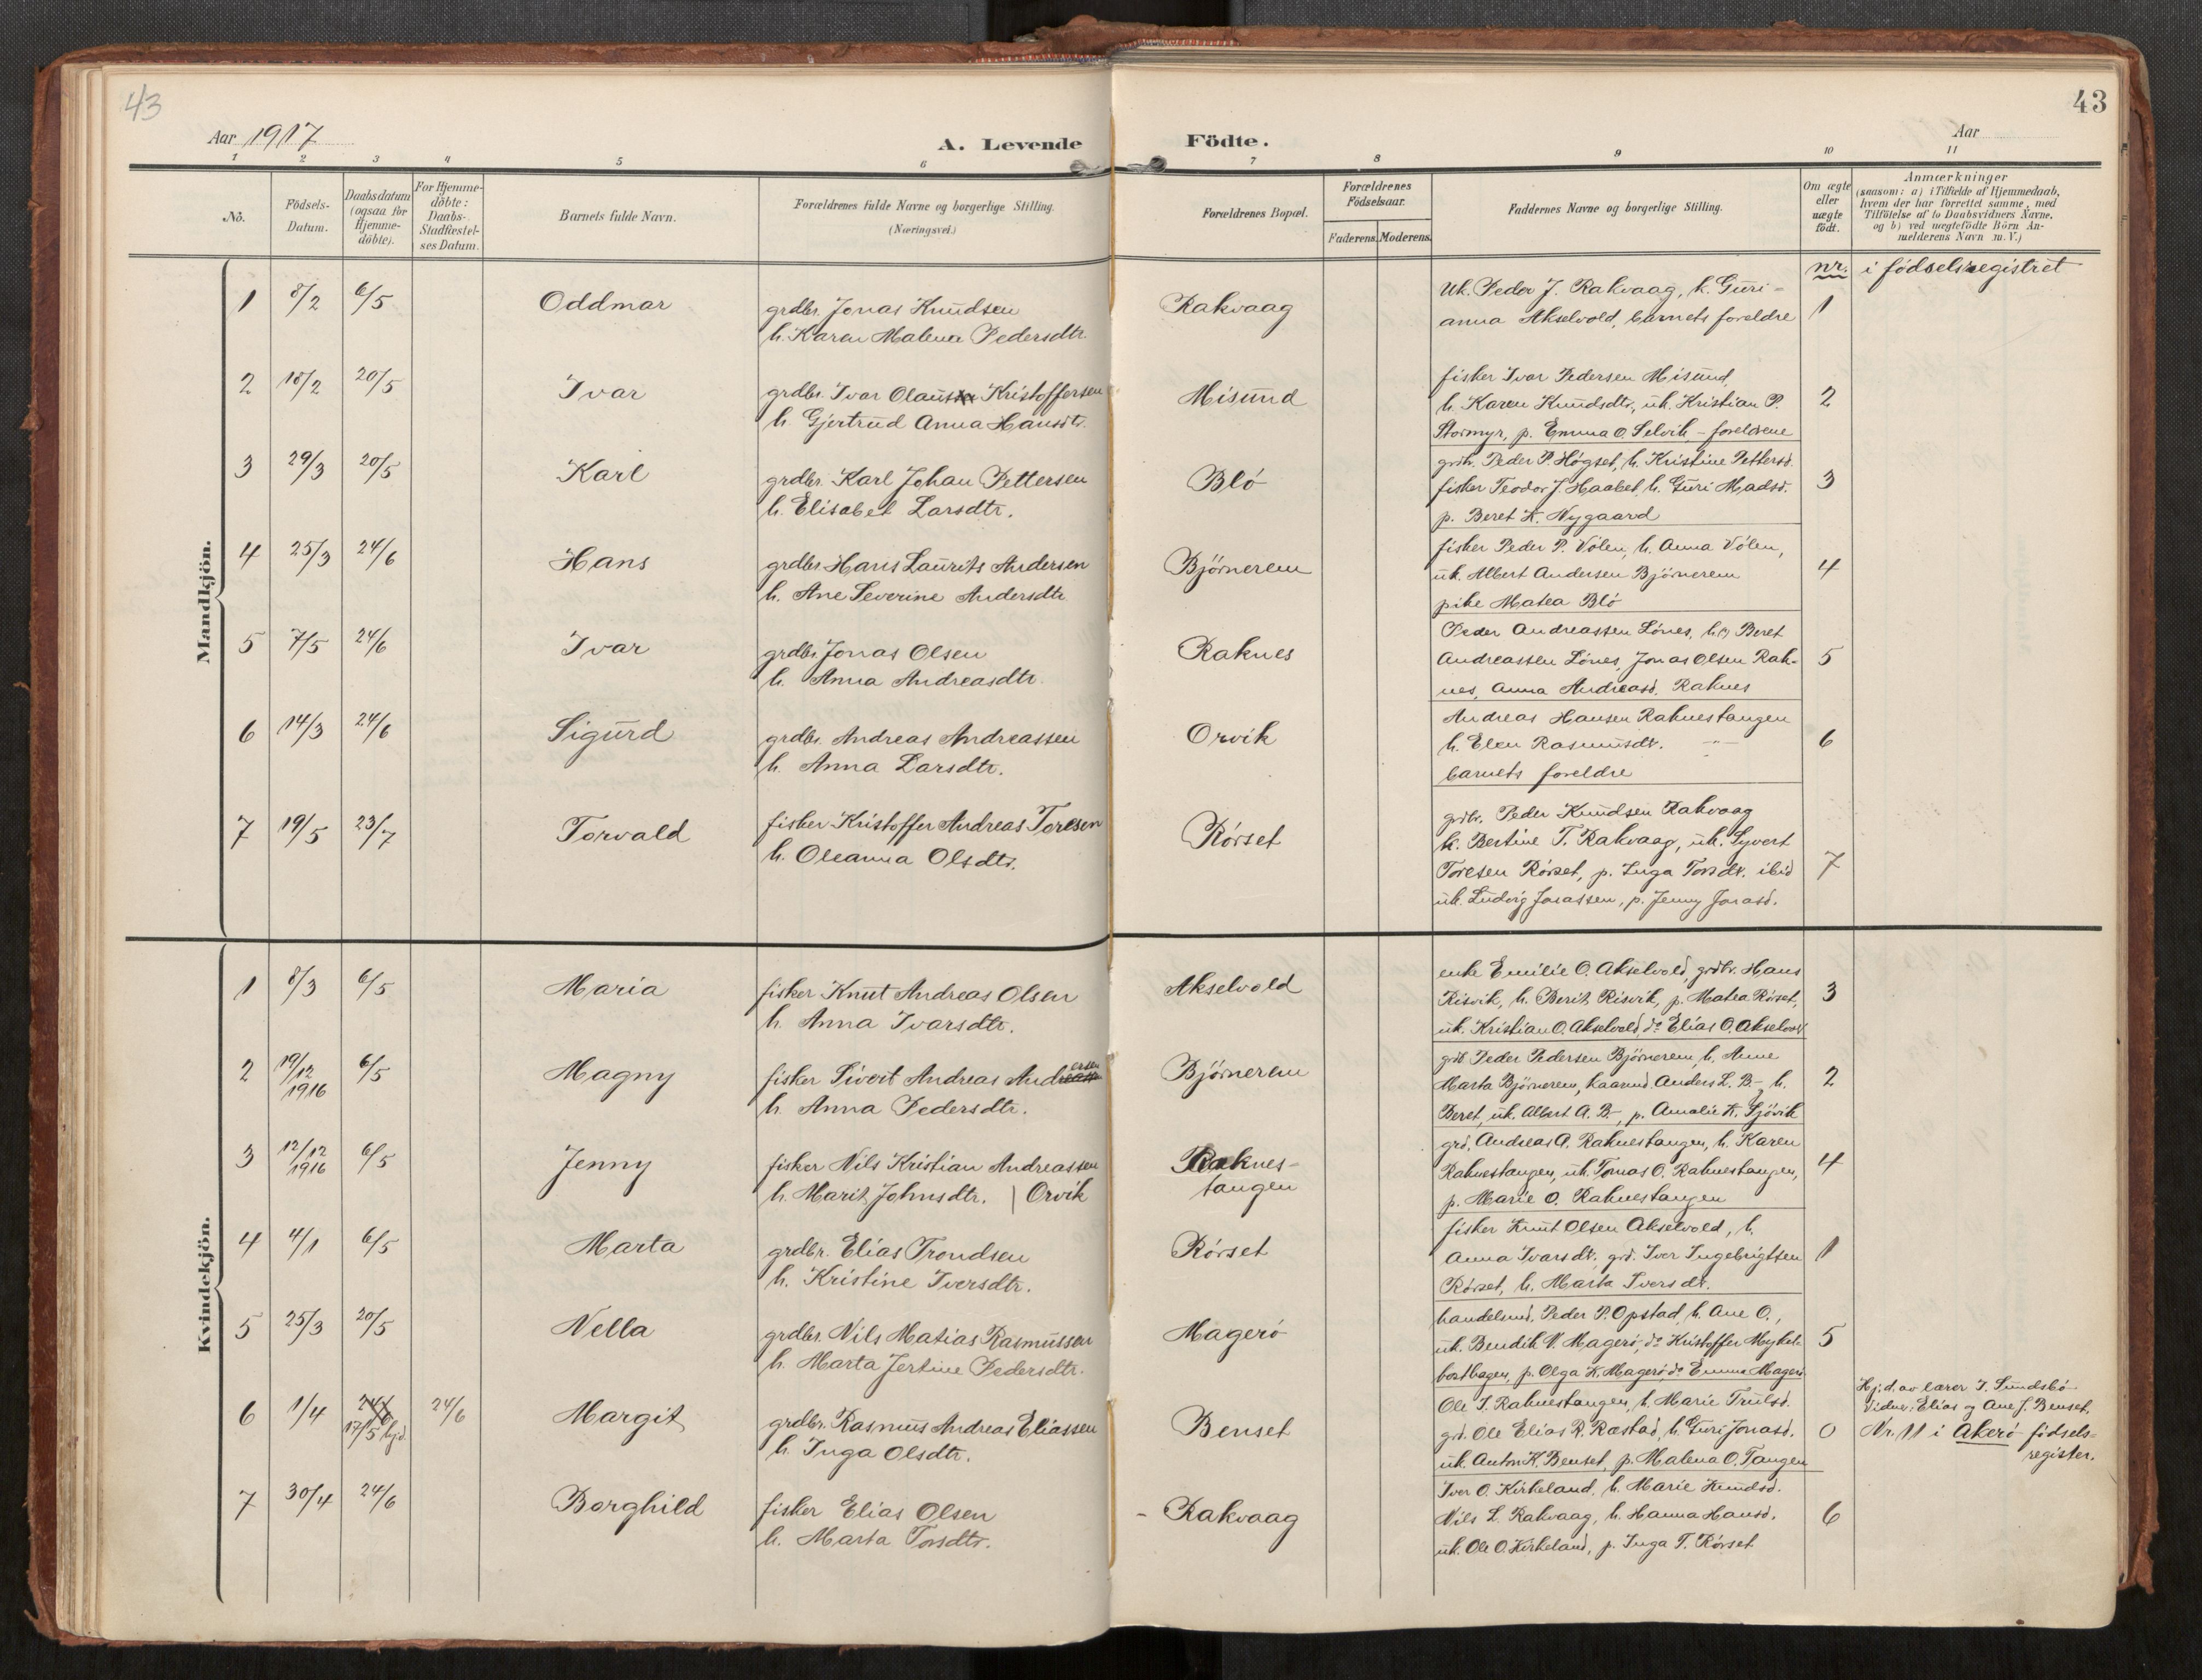 43
43
Aar 1917
A. Levende Födte.
Aar
1 2 3 4 5 6 7 8 9 10 11
Nö.
Födsels-Datum.
Daabsdatum (ogsaa for Hjemmedöbte).
For Hjemmedöbte: Daabs-Stadfæstelses Datum.
Barnets fulde Navn.
Forældrenes fulde Navne og borgerlige Stilling. (Næringsvei.)
Forældrenes Bopæl.
Forældrenes Födselsaar.
Faderens. Moderens.
Faddernes Navne og borgerlige Stilling.
Om ægte eller uægte födt.
Anmærkninger
(saasom: a) i Tilfælde af Hjemmedaab,
hvem der har forrettet samme, med
Tilföielse af to Daabsvidners Navne,
og b) ved uægtefödte Börn An-
melderens Navn m. V.)
nr. i fødselsregistret
Mandkjön.
1 8/2 6/5 Oddmar
grdbr. Jonas Knudsen
h. Karen Malena Pedersdtr.
Rakvaag
Uk. Peder J. Rakvaag, h. Guri-
anna Akselvold, barnets foreldre
1
2 18/2 20/5 Ivar
grdbr. Ivar Olaus Kristoffersen
h. Gjertrud Anna Hansdtr.
Misund
fisker Ivar Pedersen Misund,
h. Karen Knudsdtr, uk. Kristian P.
Stormyr, p. Emma O. Selvik - foreldrene
2
3 29/3 20/5 Karl
grdbr. Karl Johan Pettersen
h. Elisabet Larsdtr.
Blö
grdbr. Peder P. Høgset, h. Kristine Pettersd.
fisker Teodor J. Haabet, h. Guri Madsd.
p. Beret K. Nygaard
3
4 25/3 24/6 Hans
grdbr Hans Laurits Andersen
h. Ane Severine Andersdtr
Björnerem
fisker Peder P. Völen, h. Anna Völen,
uk. Albert Andersen Björnerem
pike Matea Blö
4
5 7/5 24/6 Ivar
grdbr Jonas Olsen
h. Anna Andreasdtr.
Raknes
Peder Andreassen Lönes, h. Beret
Andreassen Lönes, Jonas Olsen Rak-
nes, Anna Andreasd. Raknes
5
6 14/3 24/6 Sigurd
grdbr. Andreas Andreassen
h. Anna Larsdtr.
Orvik
Andreas Hansen Raknestangen
h. Elen Rasmusdtr. -"-
barnets foreldre
6
7 19/5 23/7 Torvald
fisker Kristoffer Andreas Toresen
h. Oleanna Olsdtr.
Rörset
grdbr. Peder Knudsen Rakvaag
h. Bertine T. Rakvaag, uk. Syvert
Toresen Rörset, p. Inga Torsdtr. ibid
uk. Ludvig Jonassen, p. Jenny Jonasd.
7
Kvindekjön.
1 8/3 6/5 Maria
fisker Knut Andreas Olsen
h. Anna Ivarsdtr.
Akselvold
enke Emilie O. Akselvold, grdbr. Hans
Risvik, h. Berit Risvik, p. Matea Rörset,
uk. Kristian O. Akselvold, do Elias O. Akselvold
3
2 19/12 1916 6/5 Magny
fisker Sivert Andreas Andersen
h. Anna Pedersdtr.
Björnerem
grdb. Peder Pedersen Björnerem, h. Anne
Marta Björnerem, kaarmd. Anders L. B-, h.
Beret, uk. Albert A. B-, p. Amalie K. Sjövik
2
3 12/12 1916 6/5 Jenny
fisker Nils Kristian Andreassen
h. Marit Johnsdtr. | Orvik
Raknes-
tangen
grd. Andreas A. Raknestangen, h. Karen
Raknestangen, uk. Tomas O. Raknestangen,
p. Marie O. Raknestangen
4
4 4/1 6/5 Marta
grdbr. Elias Trondsen
h. Kristine Iversdtr.
Rörset
fisker Knut Olsen Akselvold, h.
Anna Ivarsdtr, grd. Iver Ingebrigtsen
Rörset, h. Marta Iversdtr.
1
5 25/3 20/5 Nella
grdbr. Nils Matias Rasmussen
h. Marta Jertine Pedersdtr.
Magerö
handelsmd. Peder P. Opstad, h. Ane O.,
uk. Bendik V. Magerö, do Kristoffer Mykle-
bosthagen, p. Olga K. Magerö, do Emma Magerö
5
6 1/4 24/6 17/5 hjd. 24/6 Margit
grdbr. Rasmus Andreas Eliassen
h. Inga Olsdtr.
Benset
Ole T. Raknestangen, h. Marie Trulsd.
grd. Ole Elias R. Røstad, h. Guri Jonasd.
uk. Anton K. Benset, p. Malena O. Tangen
0
Hj.d. av lærer T. Sundsbö
Vidner: Elias og Ane J. Benset.
Nr. 11 i Akerö fødsels-
register.
7 30/4 24/6 Borghild
fisker Elias Olsen
h. Marta Torsdtr.
- Rakvaag
Iver O. Kirkeland, h. Marie Knudsd.
Nils L. Rakvaag, h. Hanna Hansd.
uk. Ole O. Kirkeland, p. Inga T. Rörset
6